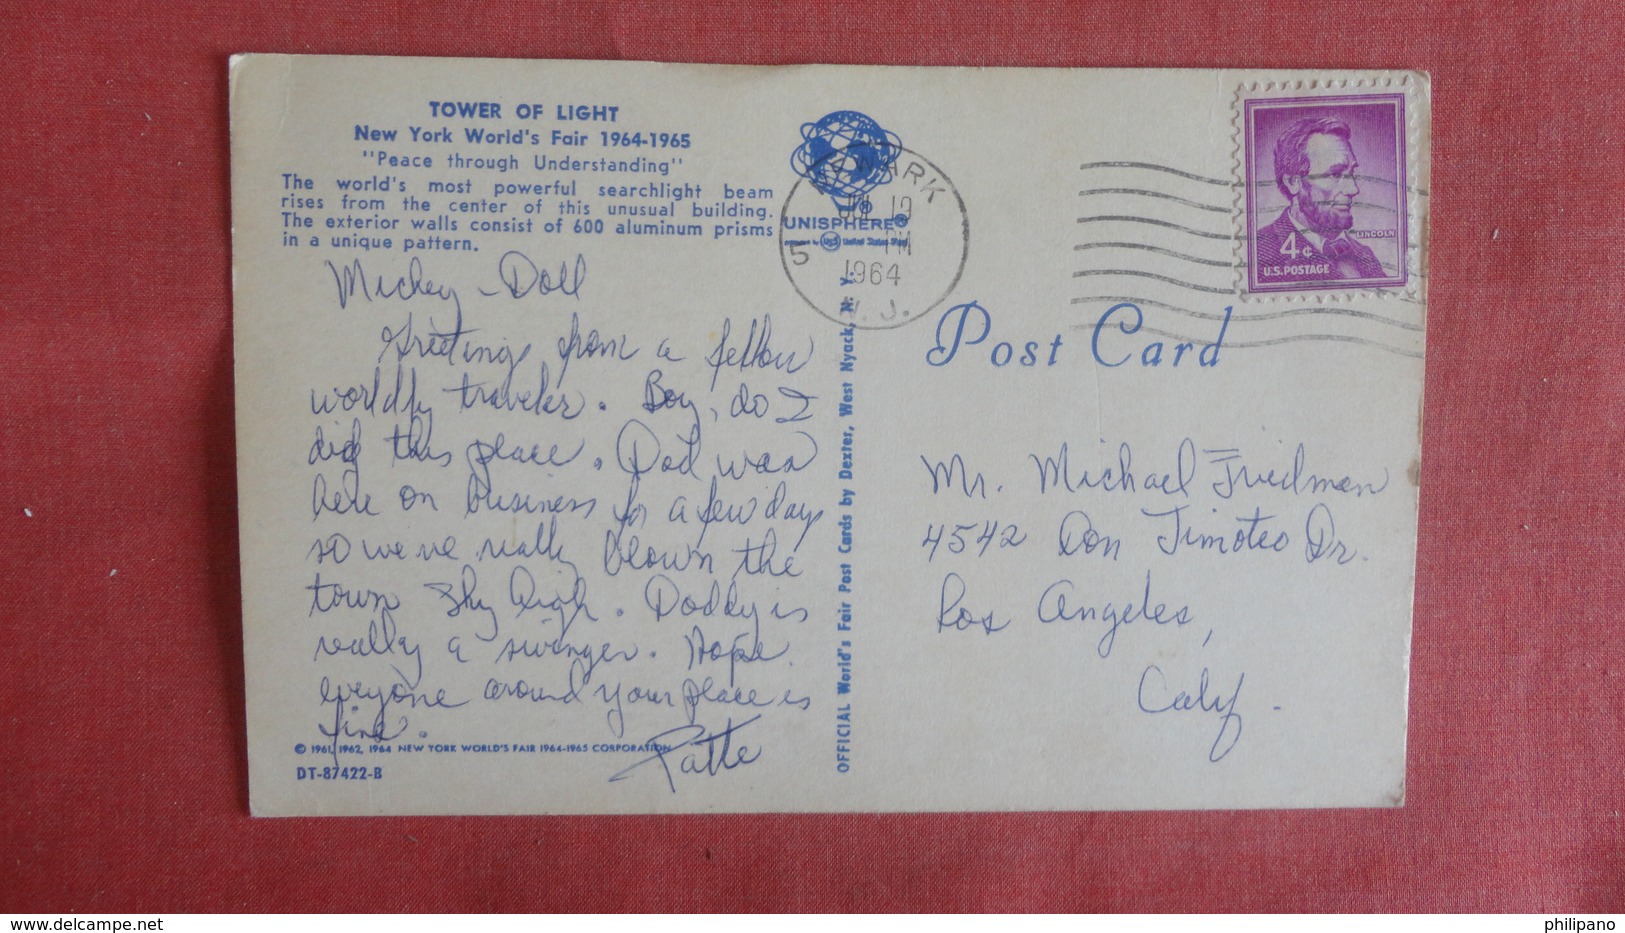 TOWER OF LIGHT
New York World's Fair 1964-1965
"Peace through Understanding"
The world's most powerful searchlight beam
rises from the center of this unusual building.
The exterior walls consist of 600 aluminum prisms
in a unique pattern.
Mickey - Doll
Greetings from a fellow
worldly traveler. Boy, do I
dig this place. Dad was
here on business for a few days
so we've really blown the
town sky high. Daddy is
really a swinger. Hope
everyone around your place is
fine.
Patte
© 1961, 1962, 1964 NEW YORK WORLD'S FAIR 1964-1965 CORPORATION
DT-87422-B
UNISPHERE®
presented by USS United States Steel
OFFICIAL World's Fair Post Cards by Dexter, West Nyack, N. Y.
NEWARK
JUL 19
5 PM
1964
N. J.
LINCOLN
4¢
U.S. POSTAGE
Post Card
Mr. Michael Friedman
4542 Don Timoteo Dr.
Los Angeles,
Calif.
philipano
delcampe.net